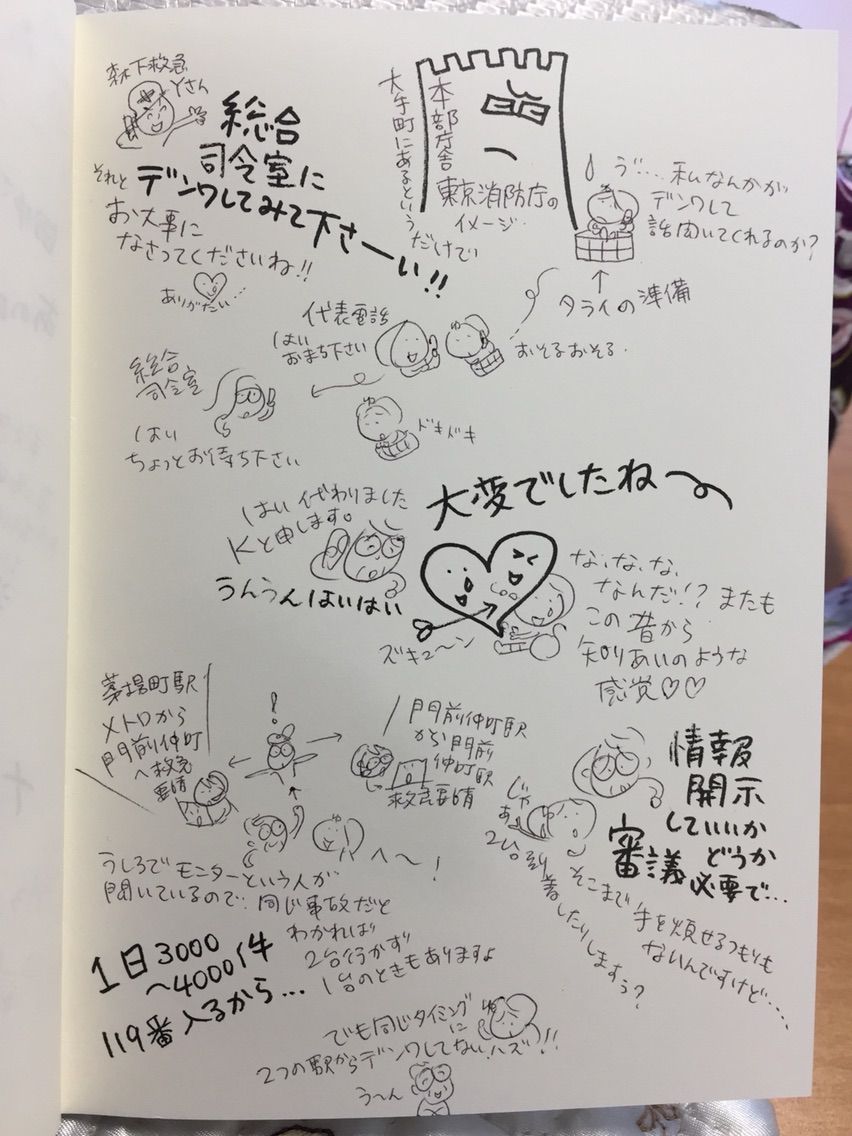 森下救急
Yさん
総合
司令室に
デンワしてみて下さーい!!
それと
お大事に
なさってくださいね!!
ありがたい…
本部庁舎
大手町にあるという
だけで
東京消防庁の
イメージ・
う"…私なんかが
デンワして
話聞いてくれるのか?
タライの準備
おそるおそる・
代表電話
はい
おまち下さい
総合
司令室
はい
ちょっとお待ち下さい
ドキドキ
はい代わりました
Kと申します。
うんうんはいはい
大変でしたね〜
ズキューン
な、な、な、
なんだ!?またも
この昔から
知りあいのような
感覚♡♡
茅場町駅
メトロから
門前仲町
へ救急
要請
!
門前仲町駅
から門前
仲町駅
救急要請
へ〜!
うしろでモニターという人が
聞いているので、同じ事故だと
わかれば
2台行かず
1台のときもありますよ
1日3000
〜4000件
119番入るから…
情報
開示
していいか
どうか
審議必要で…
じゃあ
2台到着したりしますぅ?
そこまで手を煩せるつもりも
ないんですけど……
でも同じタイミングに
2つの駅からデンワしてないハズ!!
う〜ん